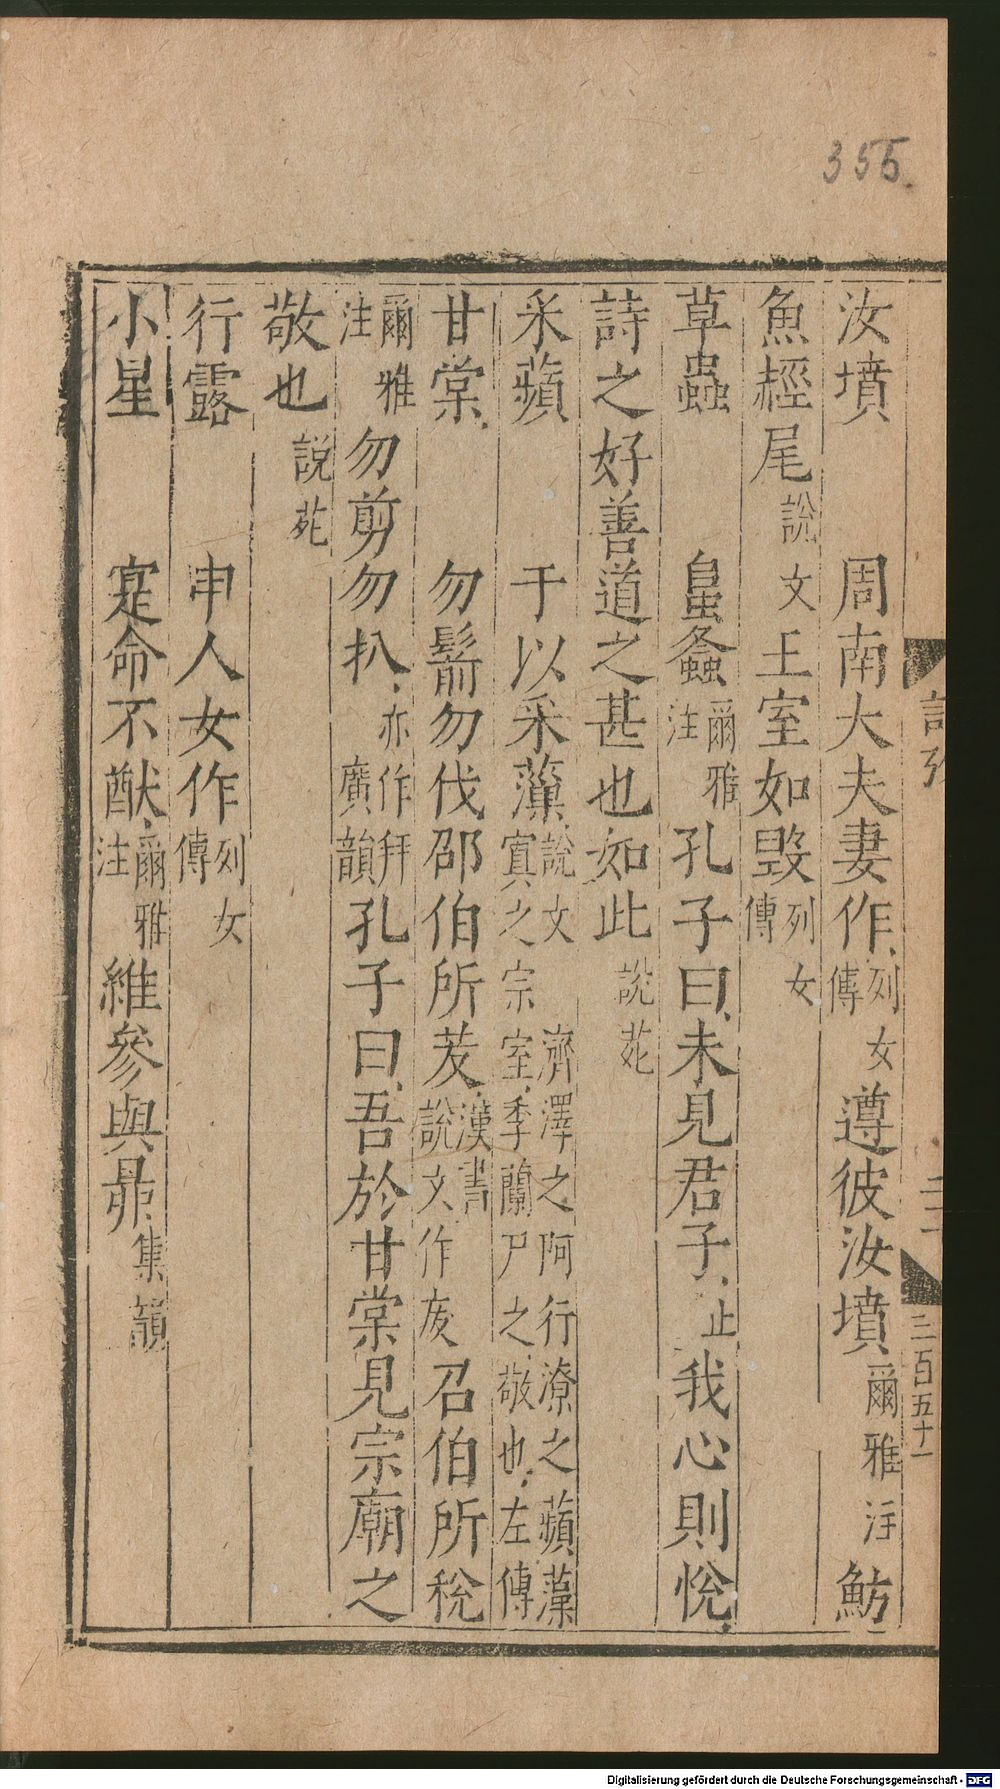 355.
三百五十一
汝墳　周南大夫妻作列女傳遵彼汝墳爾雅注魴
魚經尾說文王室如毀列女傳
草蟲　皇螽爾雅注孔子曰未見君子止我心則悅
詩之好善道之甚也如此說苑
采蘋　于以采薲說文濟澤之阿行潦之蘋藻寘之宗室季蘭尸之敬也左傳
甘棠　勿鬋勿伐邵伯所茇漢書說文作废召伯所稅
爾雅注勿剪勿扒亦作拜廣韻孔子曰吾於甘棠見宗廟之
敬也說苑
行露　申人女作列女傳
小星　寔命不猷爾雅注維參與昴集韻
Digitalisierung gefördert durch die Deutsche Forschungsgemeinschaft - DFG